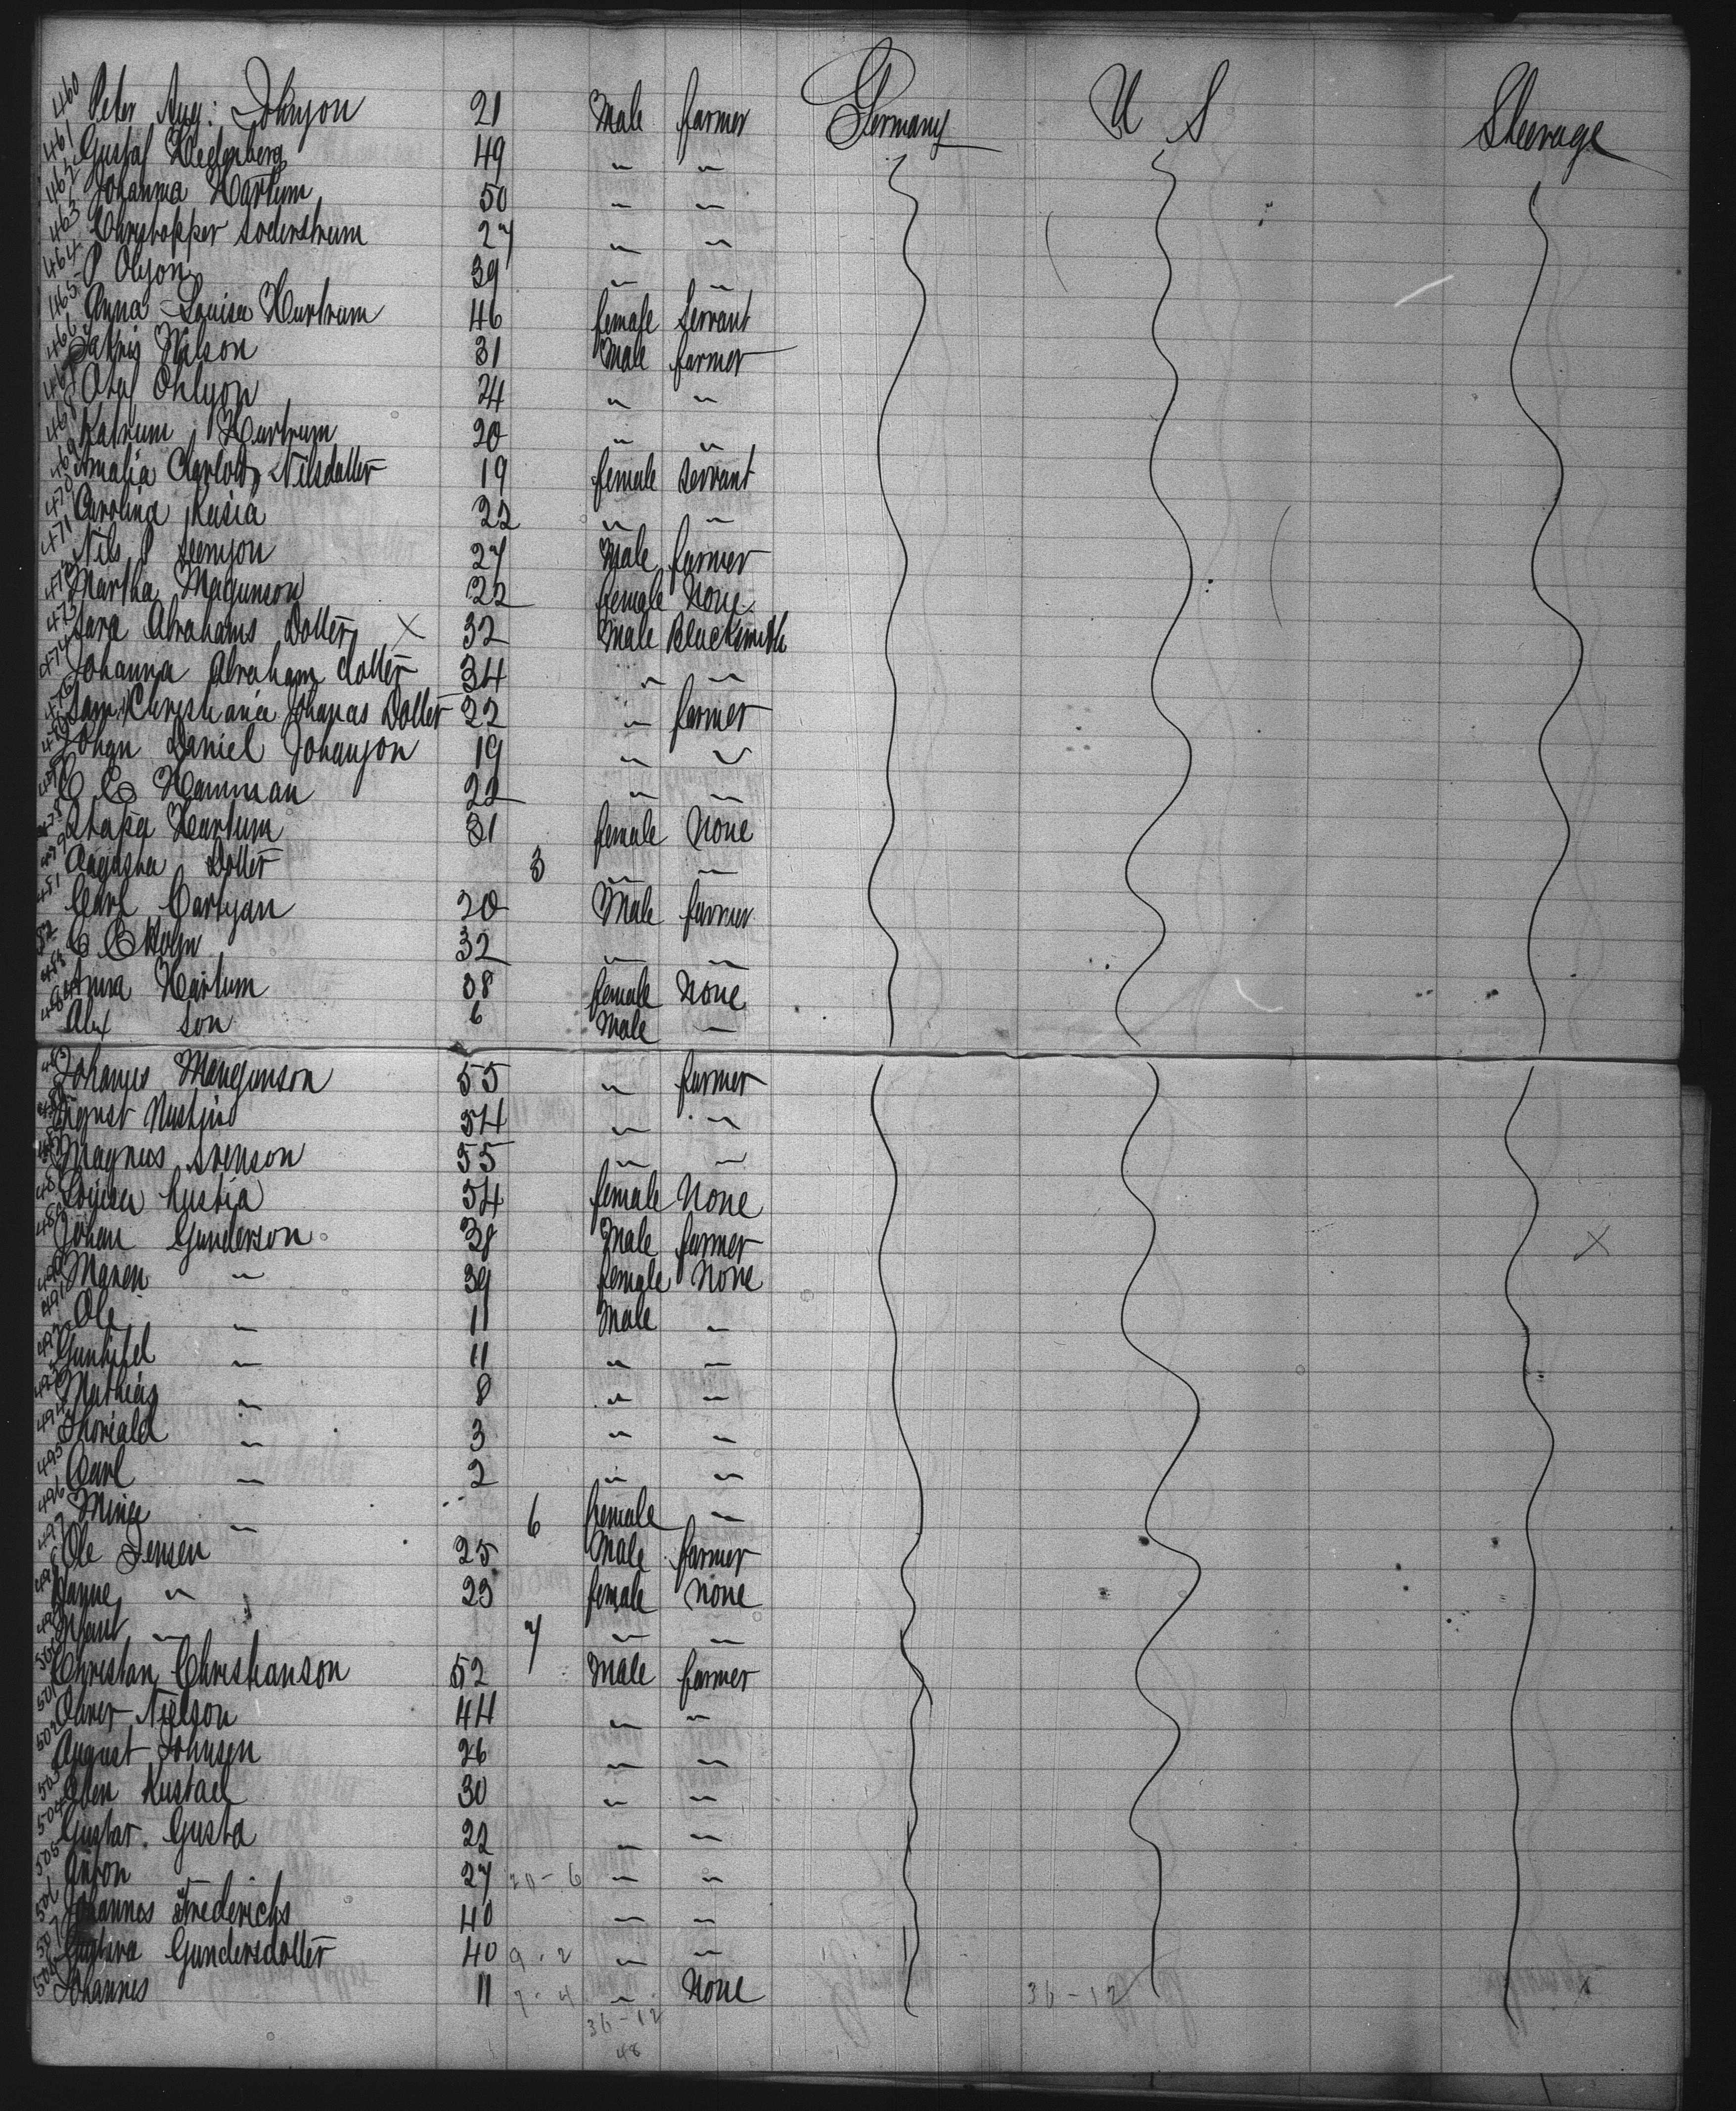 460 Peter Aug: Johnson 21 Male farmer Germany U S Steerage
461 Gustaf Hedenberg 49 " "
462 Johanna Hartum 50 " "
463 Chrystopper Soderstrum 27 " "
464 P Olson 39 " "
465 Anna Louisa Hartrum 46 female Servant
466 Nilson 31 Male farmer
467 Olaf Ohlson 24 " "
468 Katrum Hartrum 20 " "
469 Amalia Charlott Nilsdotter 19 female Servant
470 Carolina Kasia 22 " "
471 Nils P Svenson 27 Male farmer
472 Martha Magunson 22 female None
473 Sara Abrahams Dotter X 32 Male Blacksmith
474 Johanna Abraham dotter 34 " "
475 Christiania Johanas Dotter 22 " farmer
476 Johan Daniel Johanson 19 " "
477 C C Hamman 22 " "
478 Hartum 31 female None
479 Augusta Dotter 3 " "
481 Carl Carlson 20 Male farmer
82 C C 32 " "
483 Anna Hartum 38 female None
484 Alex Son 6 Male "
485 Johanes Mangunson 55 " farmer
August 54 " "
Magnus Svenson 55 " "
488 Louisa Gustia 54 female None
489 Johan Gunderson 38 Male farmer X
490 Maren " 39 female None
491 Ole " 11 Male "
492 " 11 " "
493 Mathias " 8 " "
494 Thorvald " 3 " "
495 Carl " 2 " "
496 Mina " 6 female "
497 Ole Jensen 25 Male farmer
498 Hanne " 23 female none
499 Infant " 7 " "
500 Christian Christianson 52 Male farmer
501 Oliver Nielson 44 " "
502 August Johnsen 26 " "
503 Oben Kustad 30 " "
504 Gustav. Gusta 22 " "
505 Anton 27 20-6 " "
506 Johannes Frederichs 40 " "
507 Gundersdotter 40 9-2 " "
508 Johannes 11 7-4 " None 36-12
36-12
48